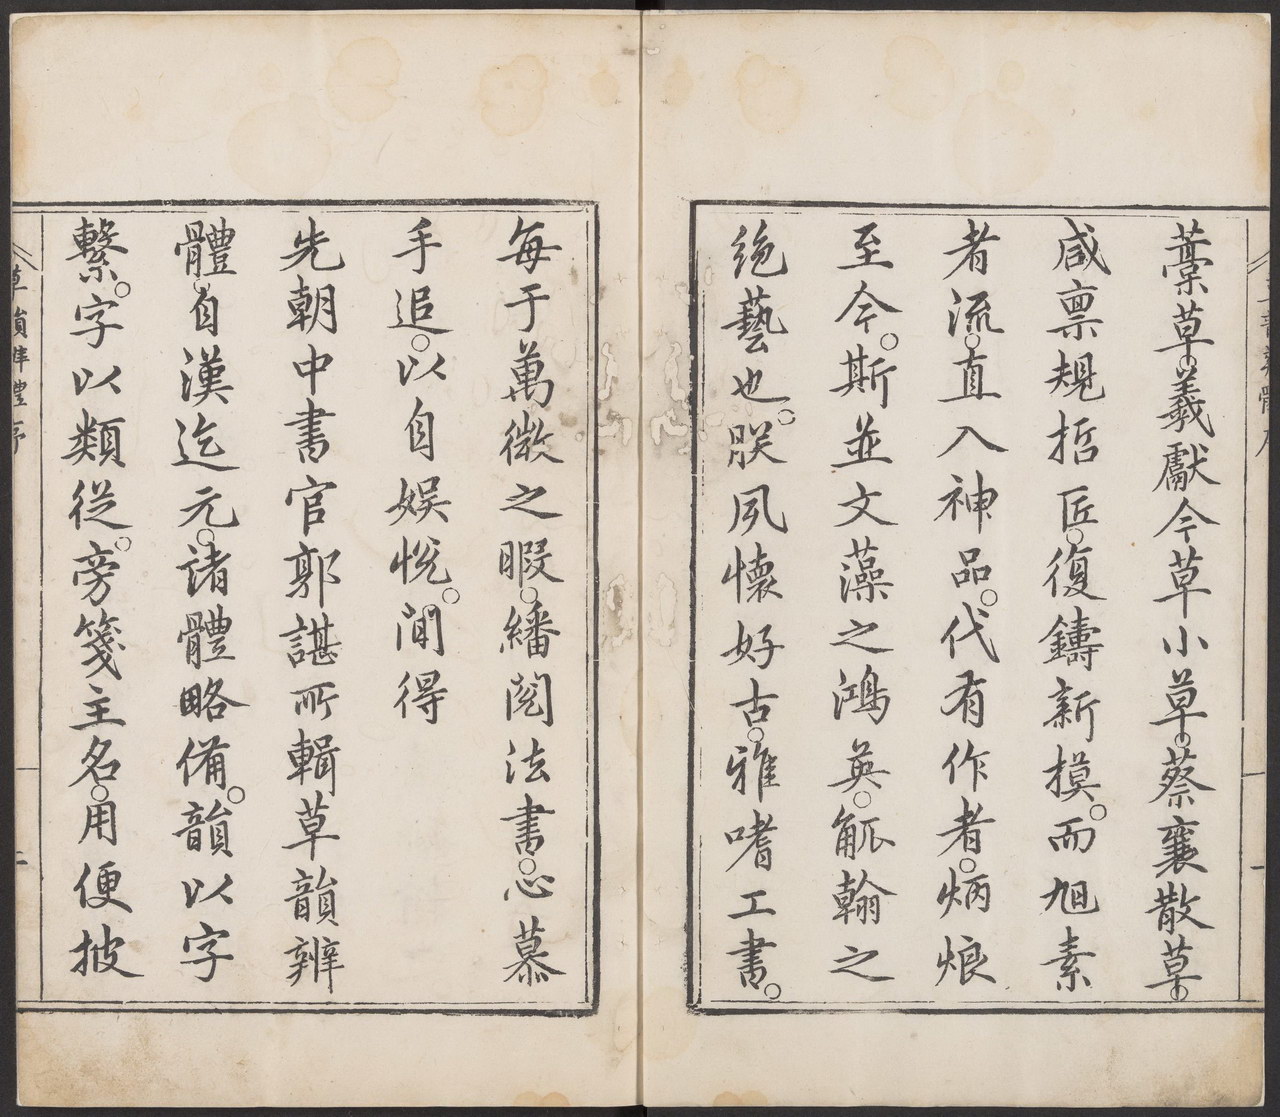 藁草。羲獻今草小草。蔡襄散草。
咸禀規哲匠。復鑄新模。而旭素
者流。直入神品。代有作者。炳烺
至今。斯並文藻之鴻英。觚翰之
絶藝也。朕夙懷好古。雅嗜工書。
每于萬微之暇。繙閱法書。心慕
手追。以自娱悅。閒得
先朝中書官郭諶所輯草韻辨
體。自漢迄元。諸體略備。韻以字
繫。字以類從。旁箋主名。用便披
草韻辨體序